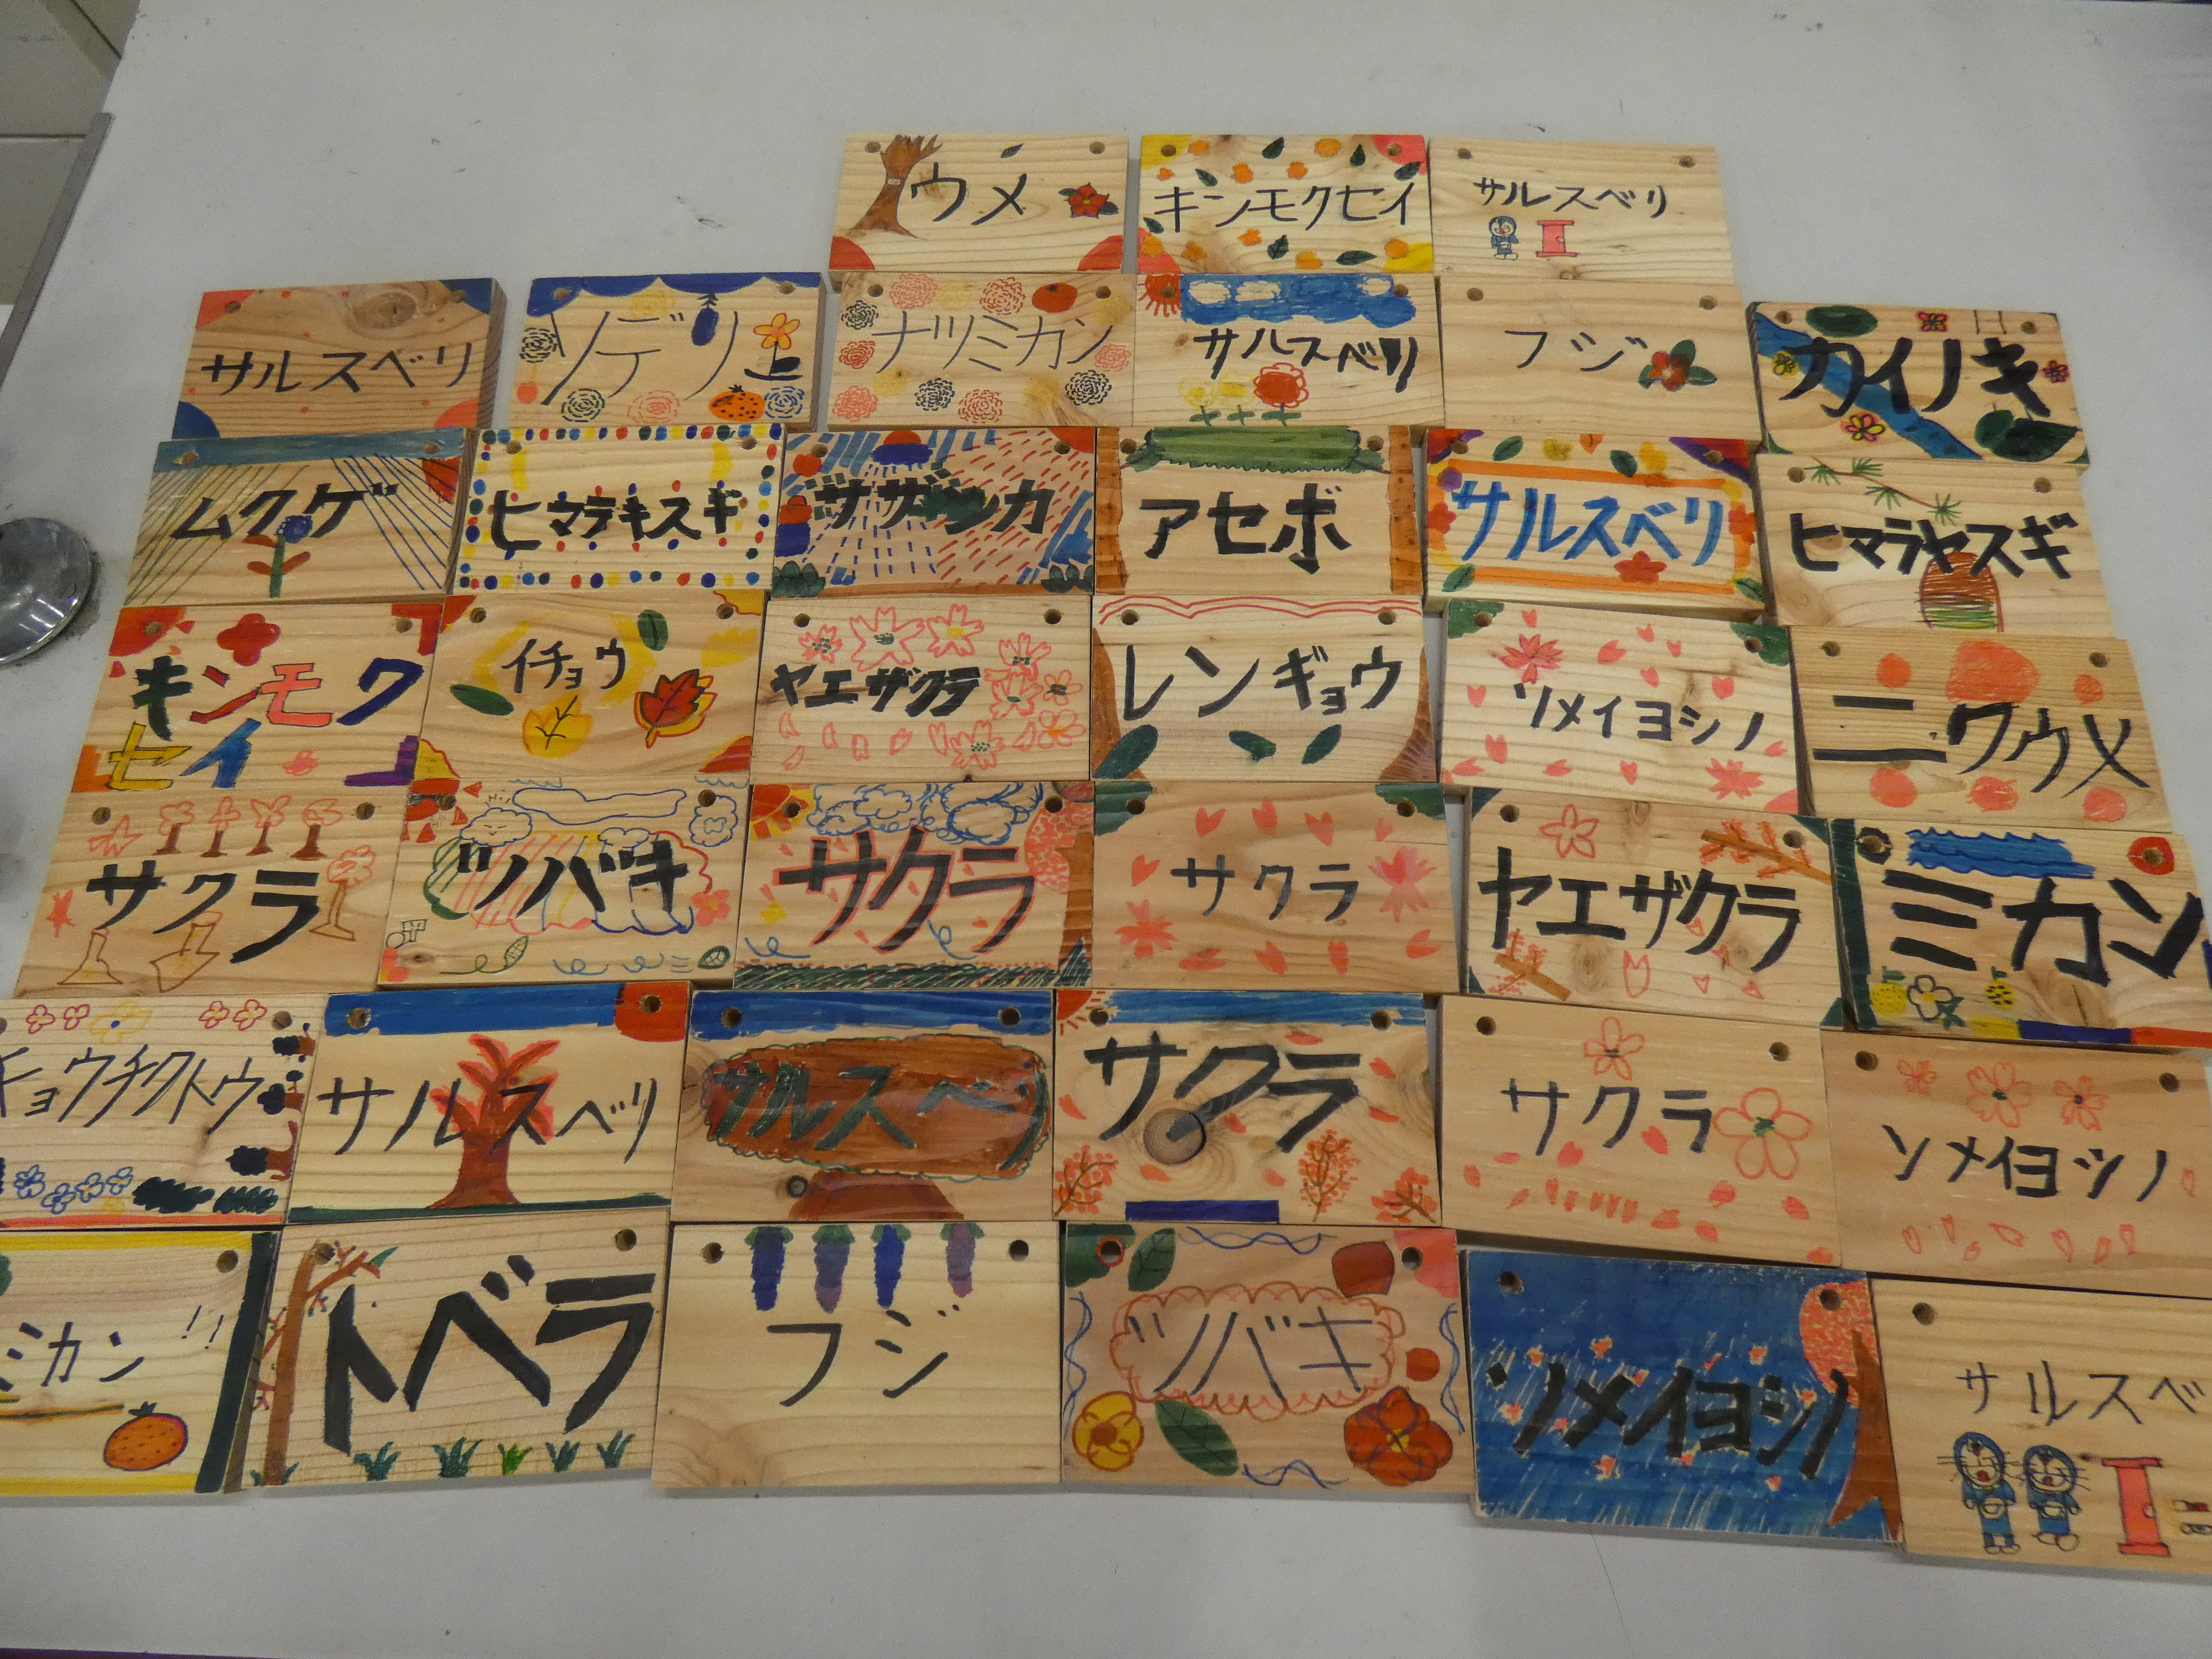 ウメ
キンモクセイ
サルスベリ
サルスベリ
ソテツ
ナツミカン
サルスベリ
フジ
カイノキ
ムクゲ
ヒマラキスギ
サザンカ
アセボ
サルスベリ
ヒマラヤスギ
キンモク
セイ
イチョウ
ヤエザクラ
レンギョウ
ソメイヨシノ
ニワウメ
サクラ
ツバキ
サクラ
サクラ
ヤエザクラ
ミカン
キョウチクトウ
サルスベリ
サルスベリ
サクラ
サクラ
ソメイヨシノ
ミカン!!
トベラ
フジ
ツバキ
ソメイヨシノ
サルスベ